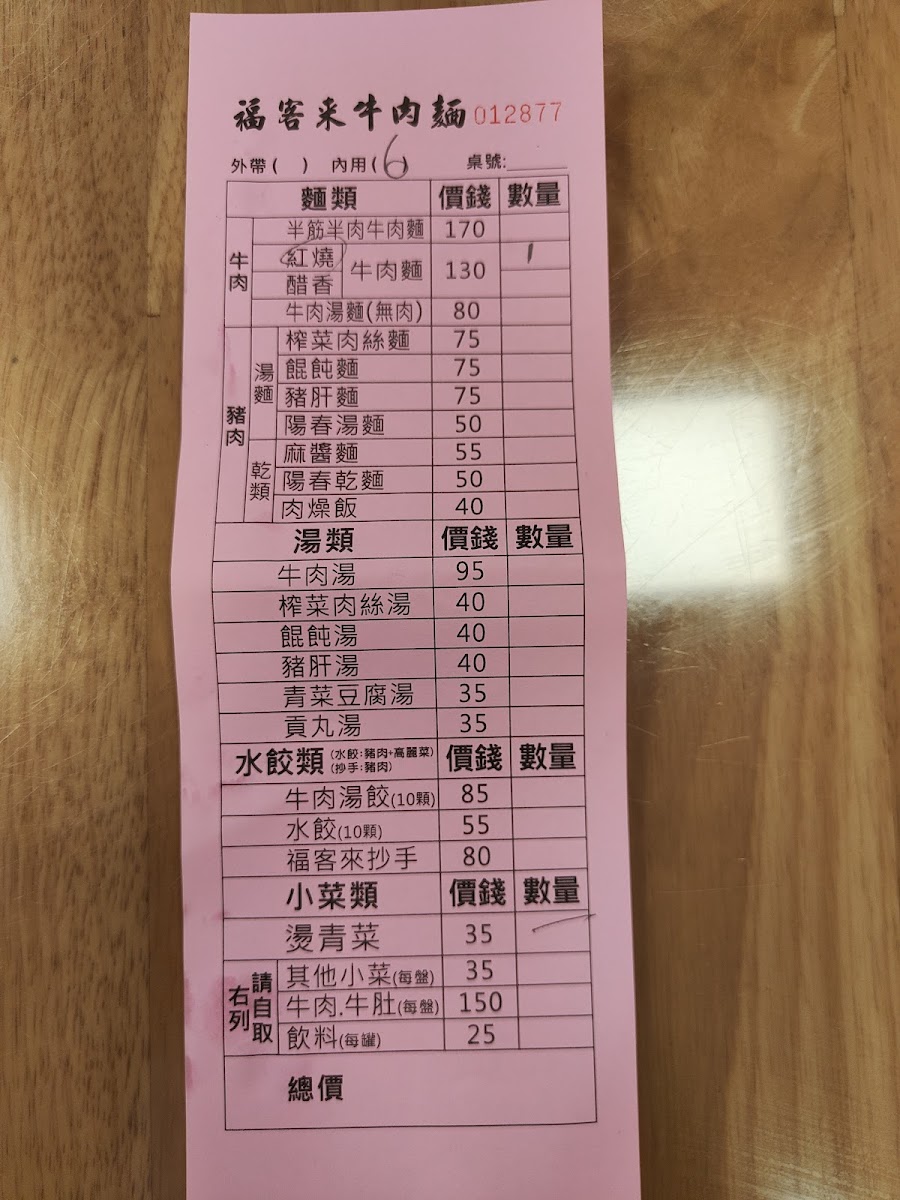 福客来牛肉麵 012877
外帶( ) 內用(6) 桌號:
麵類 價錢 數量
牛肉
半筋半肉牛肉麵 170
紅燒 牛肉麵 130 1
醋香
牛肉湯麵(無肉) 80
豬肉
湯麵
榨菜肉絲麵 75
餛飩麵 75
豬肝麵 75
陽春湯麵 50
乾類
麻醬麵 55
陽春乾麵 50
肉燥飯 40
湯類 價錢 數量
牛肉湯 95
榨菜肉絲湯 40
餛飩湯 40
豬肝湯 40
青菜豆腐湯 35
貢丸湯 35
水餃類 (水餃:豬肉+高麗菜) 價錢 數量
(抄手:豬肉)
牛肉湯餃(10顆) 85
水餃(10顆) 55
福客來抄手 80
小菜類 價錢 數量
燙青菜 35
請自取右列
其他小菜(每盤) 35
牛肉.牛肚(每盤) 150
飲料(每罐) 25
總價